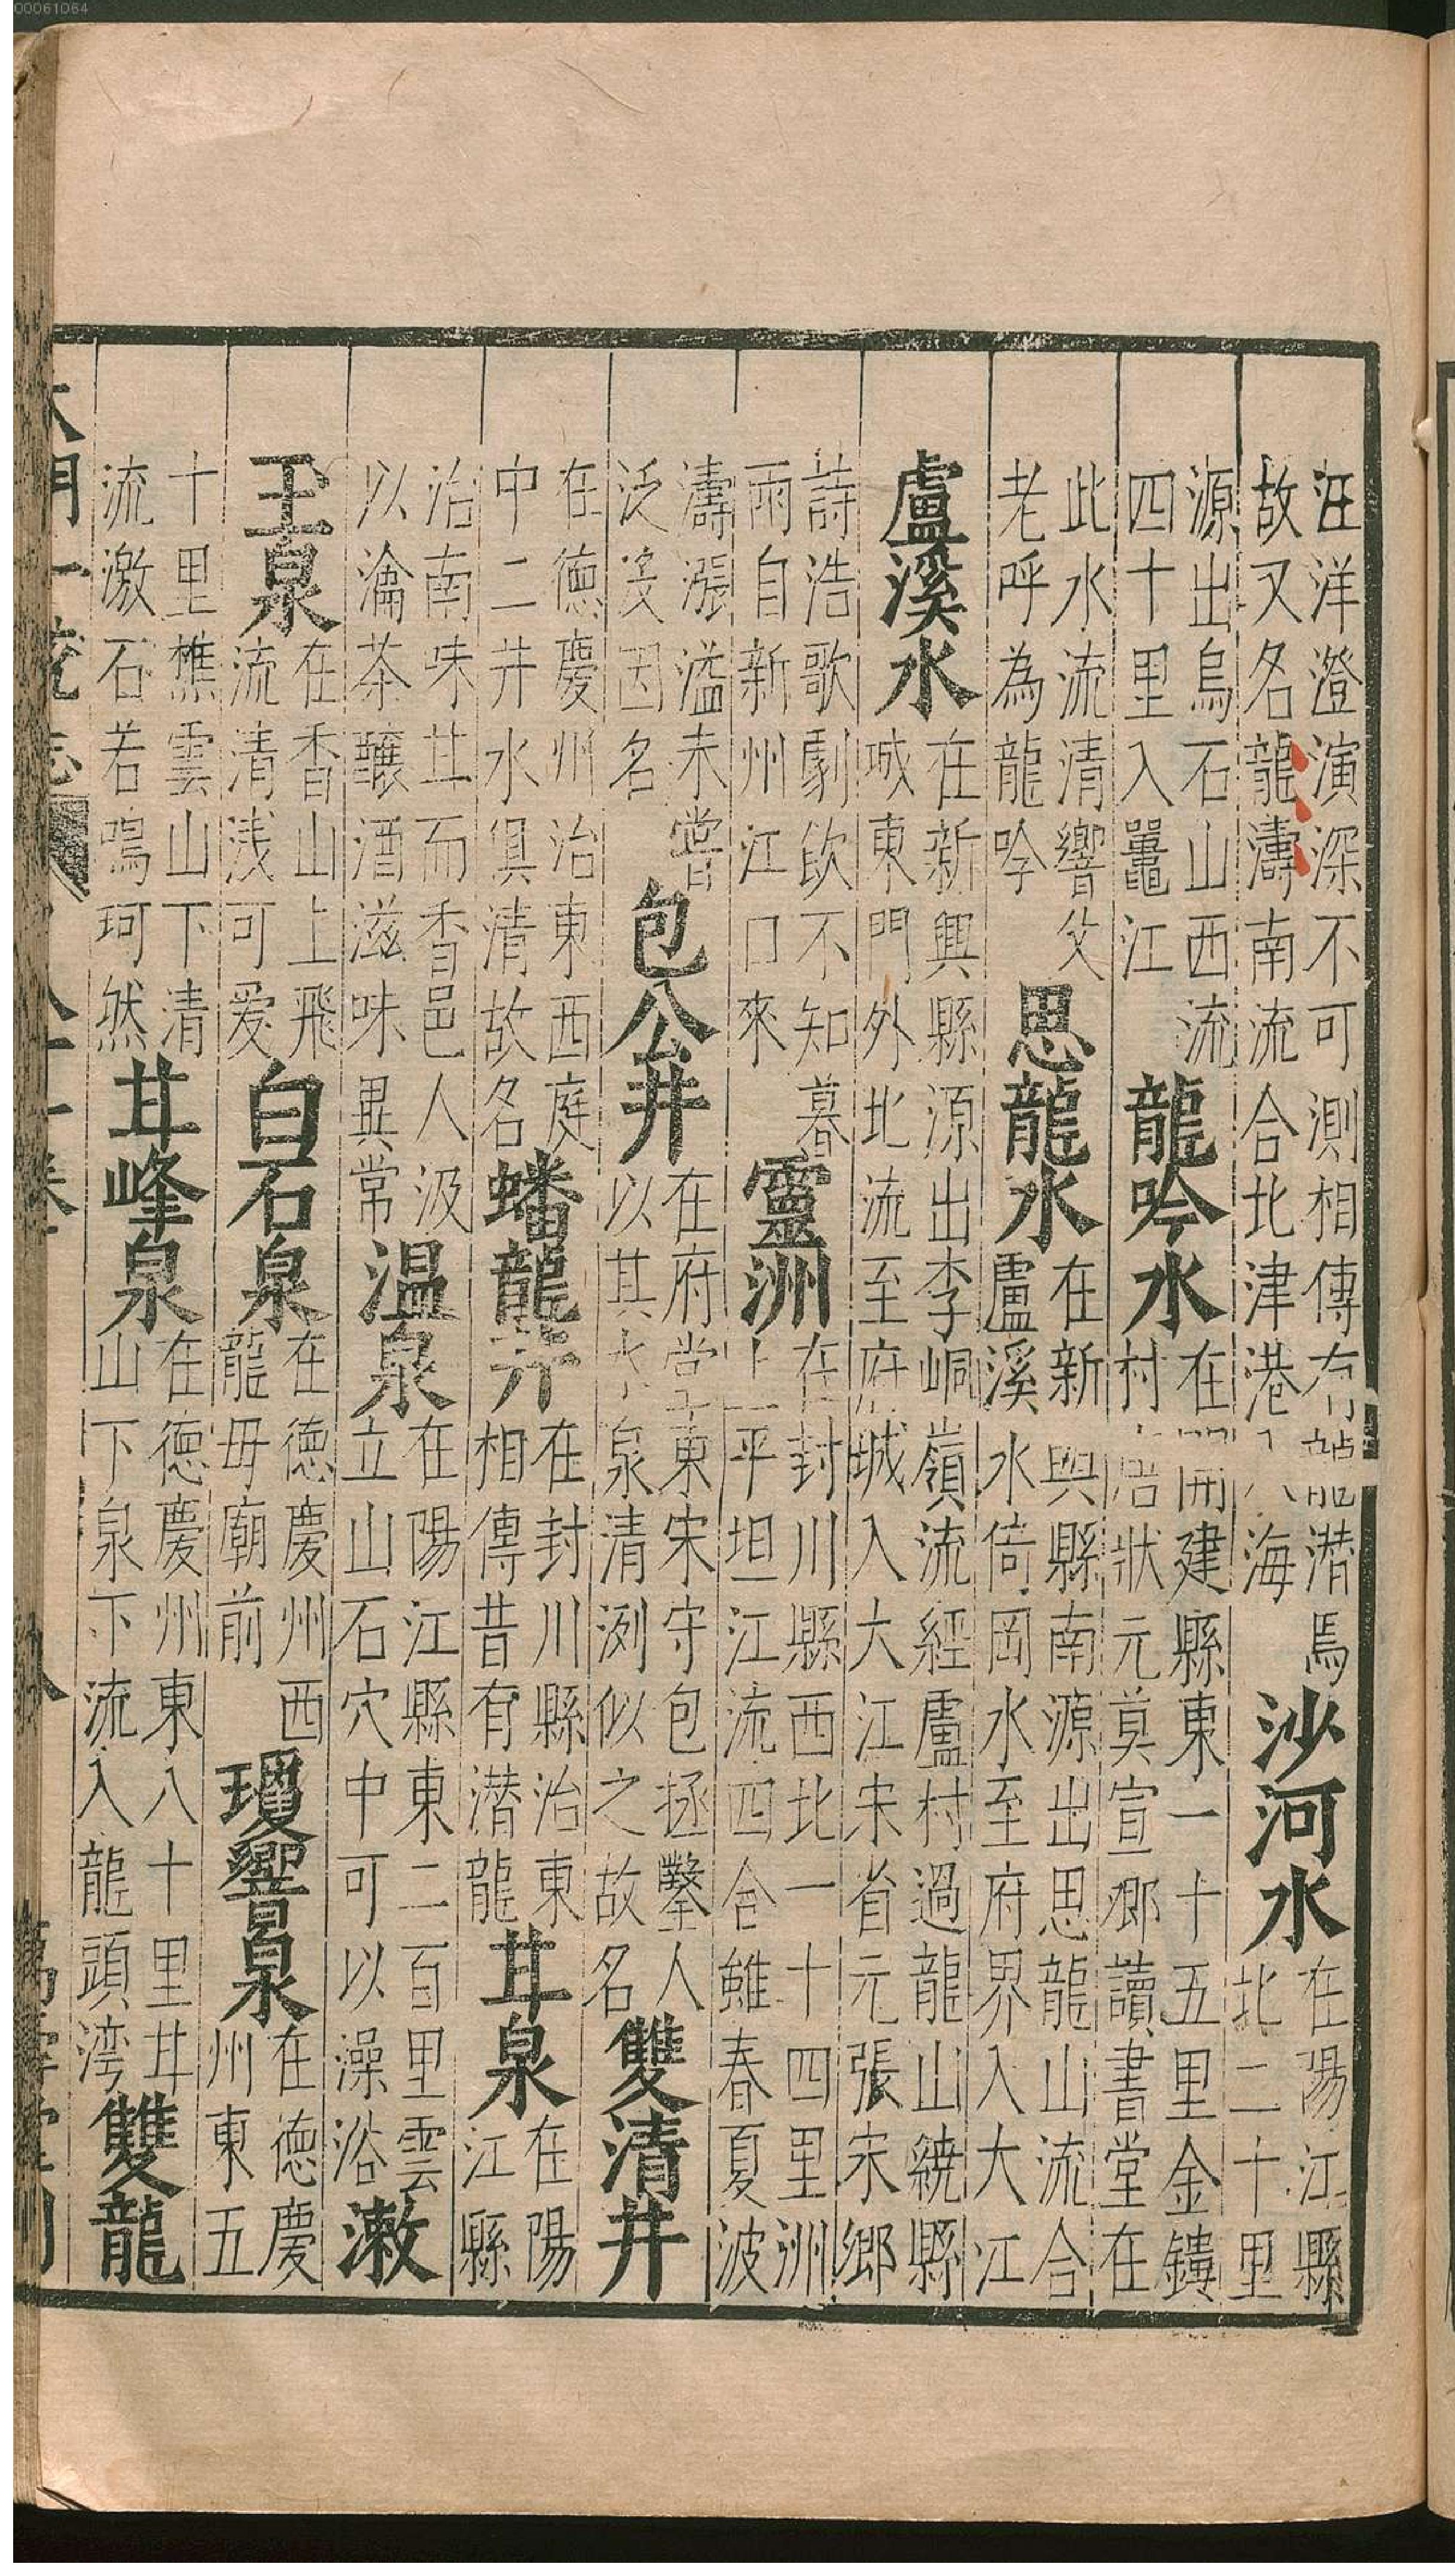 汪洋澄演深不可測相傳有龍潜焉
故又名龍濤南流合北津港入海
沙河水
在陽江縣
北二十里
源出烏石山西流
四十里入鼉江
龍吟水
在開建縣東一十五里金鏤
村唐狀元莫宣卿讀書堂在
此水流清響父
老呼為龍吟
思龍水
在新興縣南源出思龍山流合
盧溪水倚岡水至府界入大江
盧溪水
在新興縣源出李峒嶺流經盧村過龍山繞縣
城東門外北流至府城入大江宋省元張宋鄉
詩浩歌劇飲不知暮
雨自新州江口來
靈洲
在封川縣西北一十四里洲
上平坦江流四合雖春夏波
濤漲溢未嘗
泛沒因名
包公井
在府堂東宋守包拯鑿人
以其水泉清洌似之故名
雙清井
在德慶州治東西庭
中二井水俱清故名
蟠龍井
在封川縣治東
相傳昔有潜龍
甘泉
在陽
江縣
治南味甘而香邑人汲
以瀹茶釀酒滋味異常
温泉
在陽江縣東二百里雲
立山石穴中可以澡浴
漱
玉泉
在香山上飛
流清浅可爱
白石泉
在德慶州西
龍毋廟前
瓊響泉
在德慶
州東五
十里樵雲山下清
流激石若鳴珂然
甘峰泉
在德慶州東八十里甘
山下泉下流入龍頭湾
雙龍
00061064